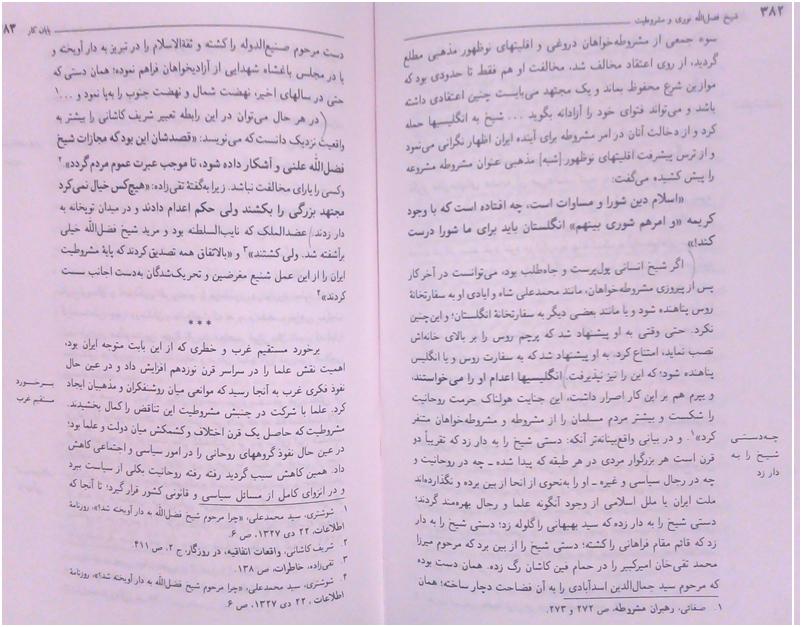 ۳۸۲
شیخ فضل‌الله نوری و مشروطیت
سوء جمعی از مشروطه‌خواهان دروغی و اقلیتهای نوظهور مذهبی مطلع
گردید، از روی اعتقاد مخالف شد، مخالفت او هم فقط تا حدودی بود که
موازین شرع محفوظ بماند و یک مجتهد می‌بایست چنین اعتقادی داشته
باشد و می‌تواند فتوای خود را آزادانه بگوید ... شیخ به انگلیسیها حمله
کرد و از دخالت آنان در امر مشروطه برای آینده ایران اظهار نگرانی می‌نمود
و از ترس پیشرفت اقلیتهای نوظهور [شبه] مذهبی عنوان مشروطه مشروعه
را پیش کشیده می‌گفت:
«اسلام دین شورا و مساوات است، چه افتاده است که با وجود
کریمه «و امرهم شوری بینهم» انگلستان باید برای ما شورا درست
کند!»
اگر شیخ انسانی پول‌پرست و جاه‌طلب بود، می‌توانست در آخر کار
پس از پیروزی مشروطه‌خواهان، مانند محمدعلی شاه و ایادی او به سفارتخانهٔ
روس پناهنده شود و یا مانند بعضی دیگر به سفارتخانهٔ انگلستان؛ و این‌چنین
نکرد. حتی وقتی به او پیشنهاد شد که پرچم روس را بر بالای خانه‌اش
نصب نماید، امتناع کرد. به او پیشنهاد شد که به سفارت روس و یا انگلیس
پناهنده شود؛ که این را نیز نپذیرفت. انگلیسیها اعدام او را می‌خواستند،
و یپرم هم بر این کار اصرار داشت، این جنایت هولناک حرمت روحانیت
را شکست و بیشتر مردم مسلمان را از مشروطه و مشروطه‌خواهان متنفر
کرد»۱. و در بیانی واقع‌بینانه‌تر آنکه: دستی شیخ را به دار زد که تقریباً دو
قرن است هر بزرگوار مردی در هر طبقه که پیدا شده ـ چه در روحانیت و
چه در رجال سیاسی و غیره ـ او را به‌نحوی از انحا از بین برده و نگذارده‌اند
ملت ایران یا ملل اسلامی از وجود آنگونه علما و رجال بهره‌مند گردند؛
دستی شیخ را به دار زده که سید بهبهانی را گلوله زد؛ دستی شیخ را به دار
زد که قائم مقام فراهانی را کشته؛ دستی شیخ را از بین برد که مرحوم میرزا
محمد تقی‌خان امیرکبیر را در حمام فین کاشان رگ زده. همان دست بوده
که مرحوم سید جمال‌الدین اسدآبادی را به آن فضاحت دچار ساخته؛ همان
چه‌دستی
شیخ را به
دار زد
۱. صفائی، رهبران مشروطه، ص ۲۷۲ و ۲۷۳.
پایان کار
۸۳
دست مرحوم صنیع‌الدوله را کشته و ثقة‌الاسلام را در تبریز به دار آویخته و
یا در مجلس باغشاه شهدایی از آزادیخواهان فراهم نموده؛ همان دستی که
حتی در سالهای اخیر، نهضت شمال و نهضت جنوب را به‌پا نمود و ...۱
در هر حال می‌توان در این رابطه تعبیر شریف کاشانی را بیشتر به
واقعیت نزدیک دانست که می‌نویسد: «قصدشان این بود که مجازات شیخ
فضل‌الله علنی و آشکار داده شود، تا موجب عبرت عموم مردم گردد».۲
وکسی را یارای مخالفت نباشد. زیرا به‌گفتهٔ تقی‌زاده: «هیچ‌کس خیال نمی‌کرد
مجتهد بزرگی را بکشند ولی حکم اعدام دادند و در میدان توپخانه به
دار زدند. عضدالملک که نایب‌السلطنه بود و مرید شیخ فضل‌الله خیلی
برآشفته شد. ولی کشتند»۳ و «بالاتفاق همه تصدیق کردند که پایهٔ مشروطیت
ایران را از این عمل شنیع مغرضین و تحریک‌شدگان به‌دست اجانب سست
کردند»۴
* * *
برخورد مستقیم غرب و خطری که از این بابت متوجه ایران بود،
اهمیت نقش علما را در سراسر قرن نوزدهم افزایش داد و در عین حال
نفوذ فکری غرب به آنجا رسید که موانعی میان روشنفکران و مذهبیان ایجاد
کرد. علما با شرکت در جنبش مشروطیت این تناقض را کمال بخشیدند.
مشروطیت که حاصل یک قرن اختلاف و کشمکش میان دولت و علما بود؛
در عین حال نفوذ گروههای روحانی را در امور سیاسی و اجتماعی کاهش
داد. همین کاهش سبب گردید رفته رفته روحانیت بکلی از سیاست ببرد
و در انزوای کامل از مسائل سیاسی و قانونی کشور قرار گیرد؛ تا آنجا که
برخورد
مستقیم غرب
۱. شوشتری، سید محمدعلی، «چرا مرحوم شیخ فضل‌الله به دار آویخته شد؟»، روزنامهٔ
اطلاعات، ۲۲ دی ۱۳۲۷، ص ۶.
۲. شریف کاشانی، واقعات اتفاقیه، در روزگار، ج ۲، ص ۴۱۱.
۳. تقی‌زاده، خاطرات، ص ۱۳۸.
۴. شوشتری، سید محمدعلی، «چرا مرحوم شیخ فضل‌الله به دار آویخته شد؟»، روزنامهٔ
اطلاعات، ۲۲ دی ۱۳۲۷، ص ۶.